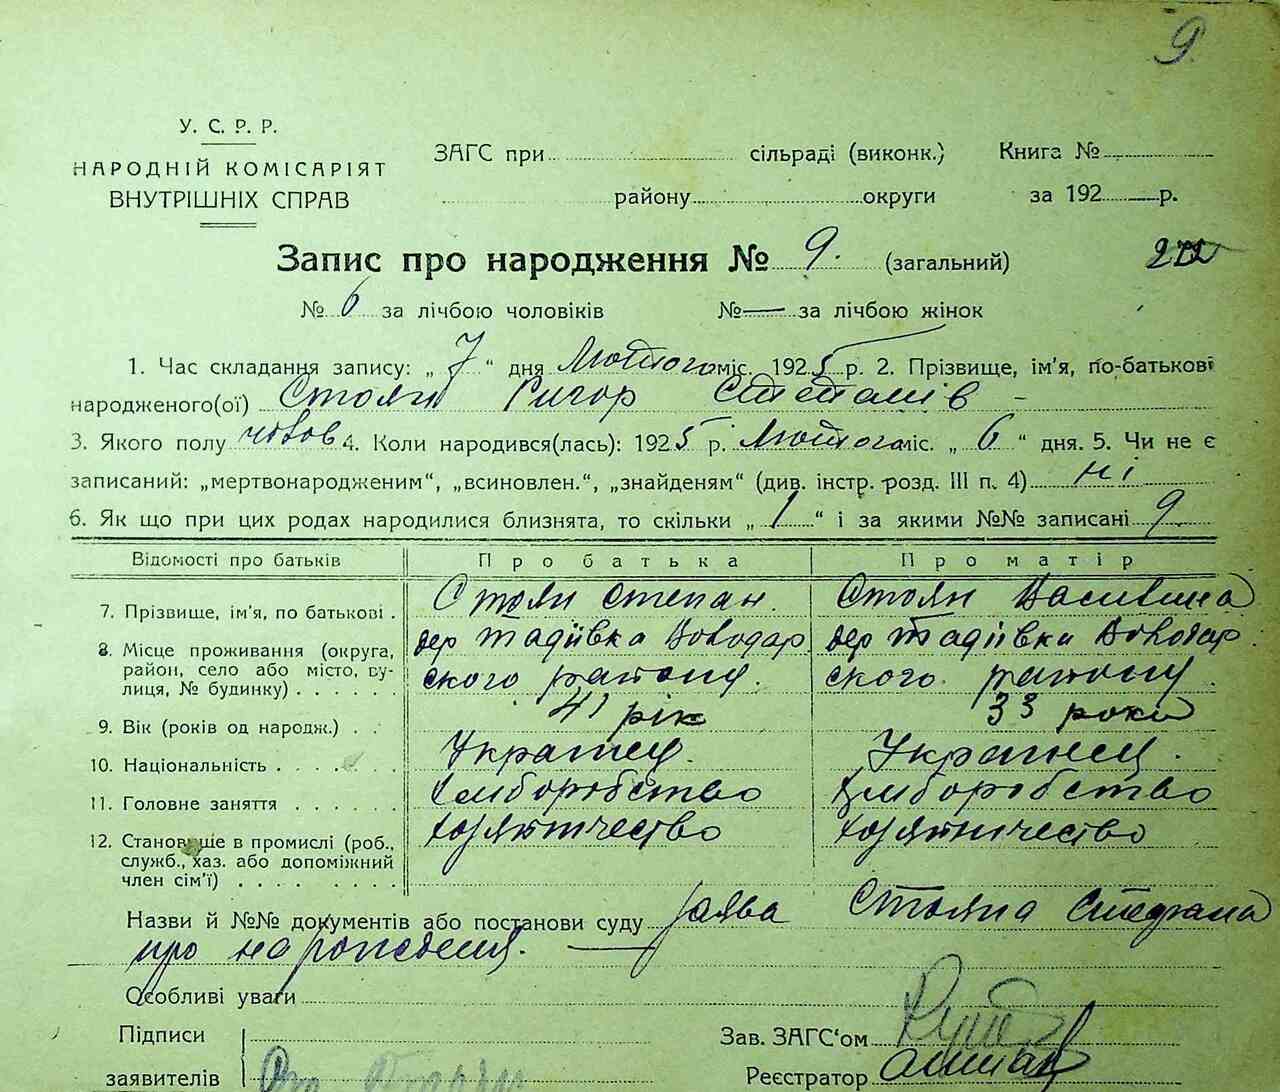 9.
У. С. Р. Р.
НАРОДНІЙ КОМІСАРІЯТ
ВНУТРІШНІХ СПРАВ
ЗАГС при сільраді (виконк.) Книга №
району округи за 192 р.
Запис про народження № 9. (загальний)
№ 6 за лічбою чоловіків № — за лічбою жінок
1. Час складання запису: „ 7 “ дня Лютого міс. 1925 р. 2. Прізвище, ім'я, по-батькові
народженого(ої) Стоян Григор Степанів -
3. Якого полу чолов 4. Коли народився(лась): 1925 р. Лютого міс. „ 6 “ дня. 5. Чи не є
записаний: „мертвонародженим“, „всиновлен.“, „знайденям“ (див. інстр. розд. III п. 4) ні
6. Як що при цих родах народилися близнята, то скільки „ 1 “ і за якими №№ записані 9
Відомості про батьків Про батька Про матір
7. Прізвище, ім'я, по батькові . Стоян Степан. Стоян Василина
8. Місце проживання (округа, район, село або місто, вулиця, № будинку) . . . . . дер Тадіївка Володарского району. дер Тадіївка Володарского району.
9. Вік (років од народж.) . . 41 рік 33 роки
10. Національність . . . . . Українец. Українец.
11. Головне заняття . . . . . . хліборобство хліборобство
12. Становище в промислі (роб., служб., хаз. або допоміжний член сім'ї) . . . . . . . .
Назви й №№ документів або постанови суду заява Стояна Степана
про народження. —
Особливі уваги
Підписи
заявителів
Зав. ЗАГС'ом
Реєстратор